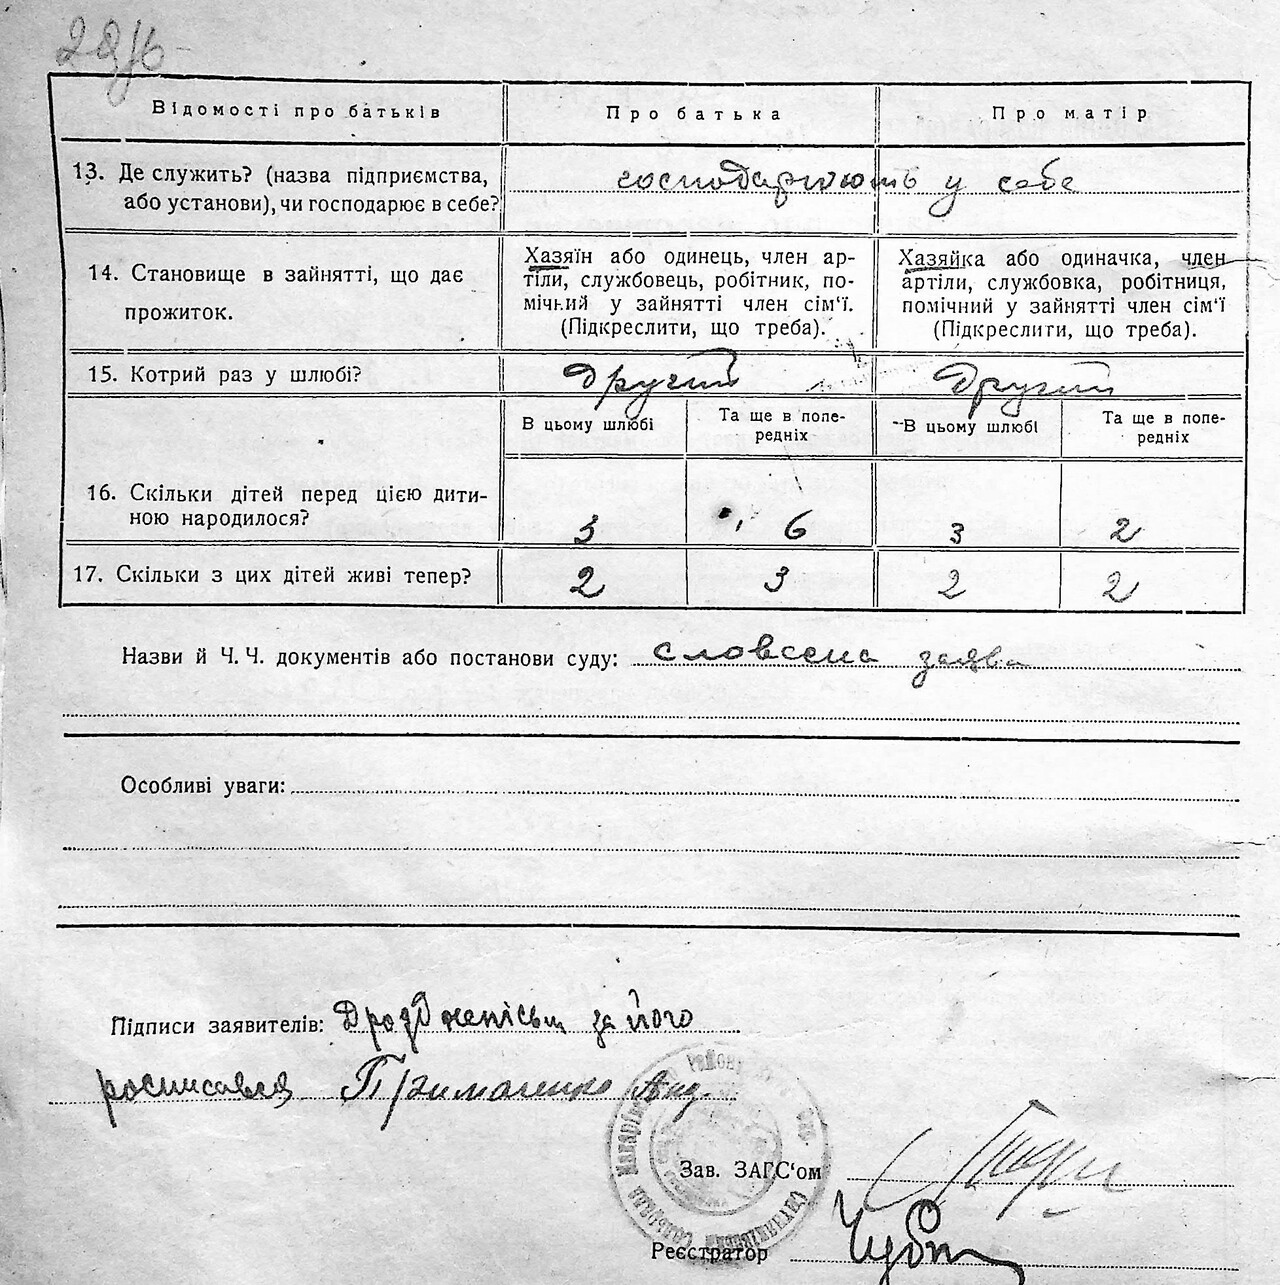 Відомості про батьків
Про батька
Про матір
13. Де служить? (назва підприємства,
або установи), чи господарює в себе?
господарюють у себе
14. Становище в зайнятті, що дає
прожиток.
Хазяїн або одинець, член ар-
тіли, службовець, робітник, по-
мічний у зайнятті член сім'ї.
(Підкреслити, що треба).
Хазяйка або одиначка, член
артіли, службовка, робітниця,
помічний у зайнятті член сім'ї
(Підкреслити, що треба).
15. Котрий раз у шлюбі?
другий
другий
В цьому шлюбі
Та ще в попе-
редніх
В цьому шлюбі
Та ще в попе-
редніх
16. Скільки дітей перед цією дити-
ною народилося?
3
6
3
2
17. Скільки з цих дітей живі тепер?
2
3
2
2
Назви й Ч. Ч. документів або постанови суду: словесна заява
Особливі уваги:
Підписи заявителів: Дрозд неписьм за його
росписався Примаченко Анд.
Зав. ЗАГС'ом
Реєстратор